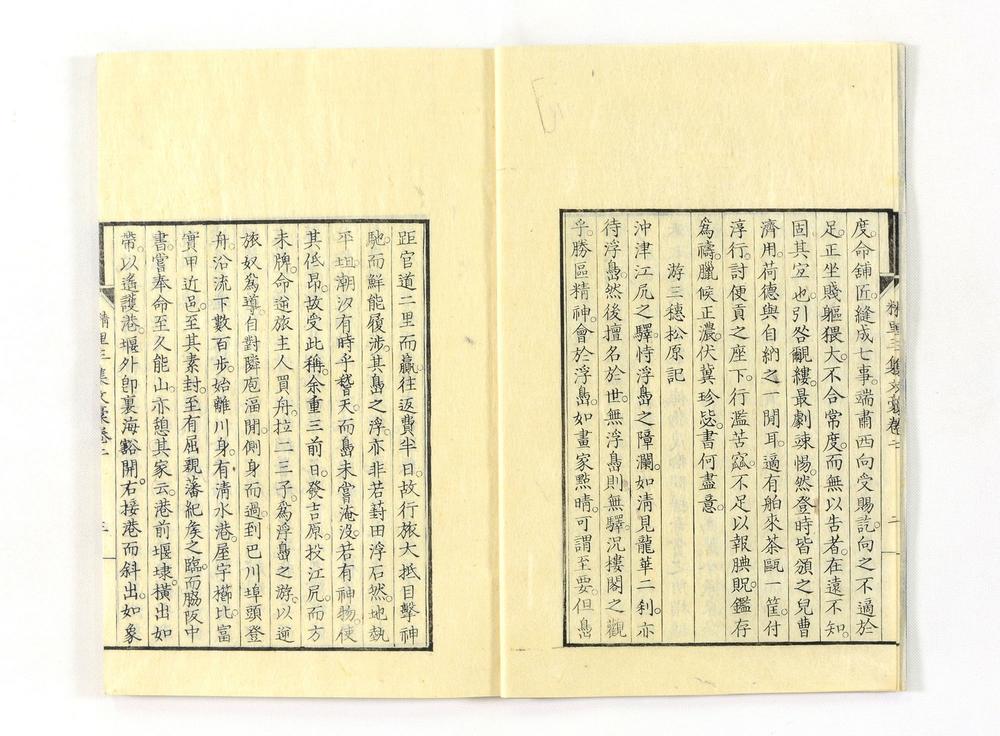 度。命舖匠縫成七事。端肅西向受賜訖。向之不適於
足。正坐賤軀猥大。不合常度。而無以告者。在遠不知。
固其宜也。引咎覼縷。最劇竦惕。然登時皆頒之兒曹
濟用。荷德與自納之一閒耳。適有舶來茶甌一筐。付
淳行。討便貢之座下。行濫苦窳。不足以報腆貺。鑑存
爲禱。臘候正濃。伏冀珍毖。書何盡意。
游三穗松原記
沖津江尻之驛。恃浮島之障瀾。如淸見龍華二刹。亦
待浮島。然後擅名於世。無浮島則無驛。況樓閣之觀
乎。勝區精神。會於浮島。如畫家點睛。可謂至要。但島
精里三集文稾卷二
二
距官道二里而贏。往返費半日。故行旅大抵目擊神
馳。而鮮能履涉。其島之浮。亦非若葑田浮石然。地埶
平坦。潮汐有時乎䭫天。而島未嘗淹沒。若有神物。使
其低昂。故受此稱。余重三前日。發吉原。投江尻。而方
未牌。命逆旅主人買舟。拉二三子。爲浮島之游。以逆
旅奴爲導。自對隣庖湢閒。側身而過。到巴川埠頭登
舟。沿流下數百步。始離川身。有淸水港。屋宇櫛比。富
實甲近邑。至其素封。至有屈親藩紀矦之臨。而脇阪中
書。嘗奉命至久能山。亦憩其家云。港前堰埭。橫出如
帶。以遙護港。堰外卽裏海。豁開。右接港而斜出。如象
精里三集文稾卷二
三